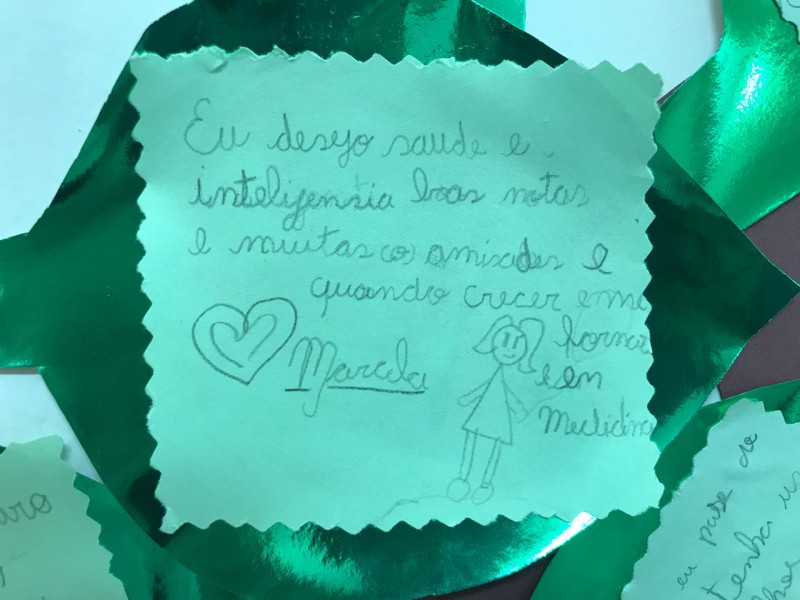 Eu desejo saude e
inteligensia boas notas
e muitas (o) amisades e
quando crecer e me
formar
em
Medicina
Marcela
eu pase de
tenha